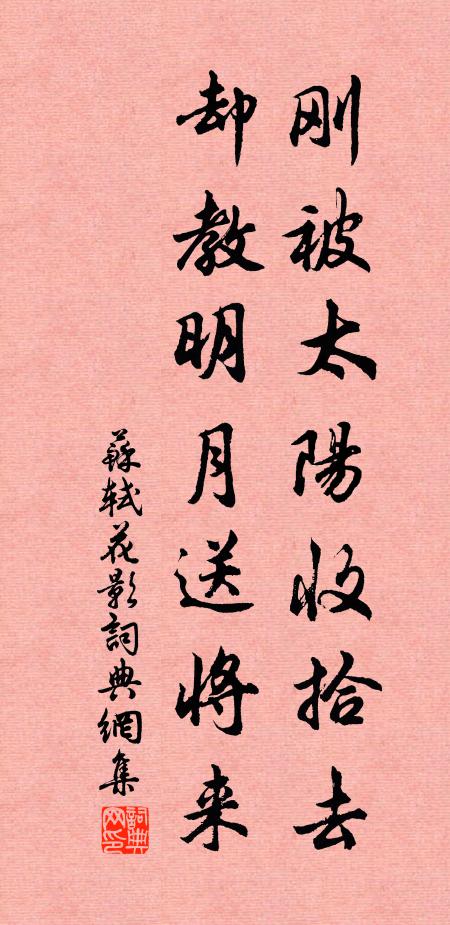 刚被太陽收拾去
却教明月送將来
蘇轼花影詞典網集
詞典网印